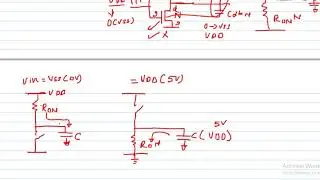 0(VSS)
X
0→VSS
VDD
RON N
Vin = VSS(0V)
= VDD (5V)
VDD
RON
C
5V
RON
C (VDD)